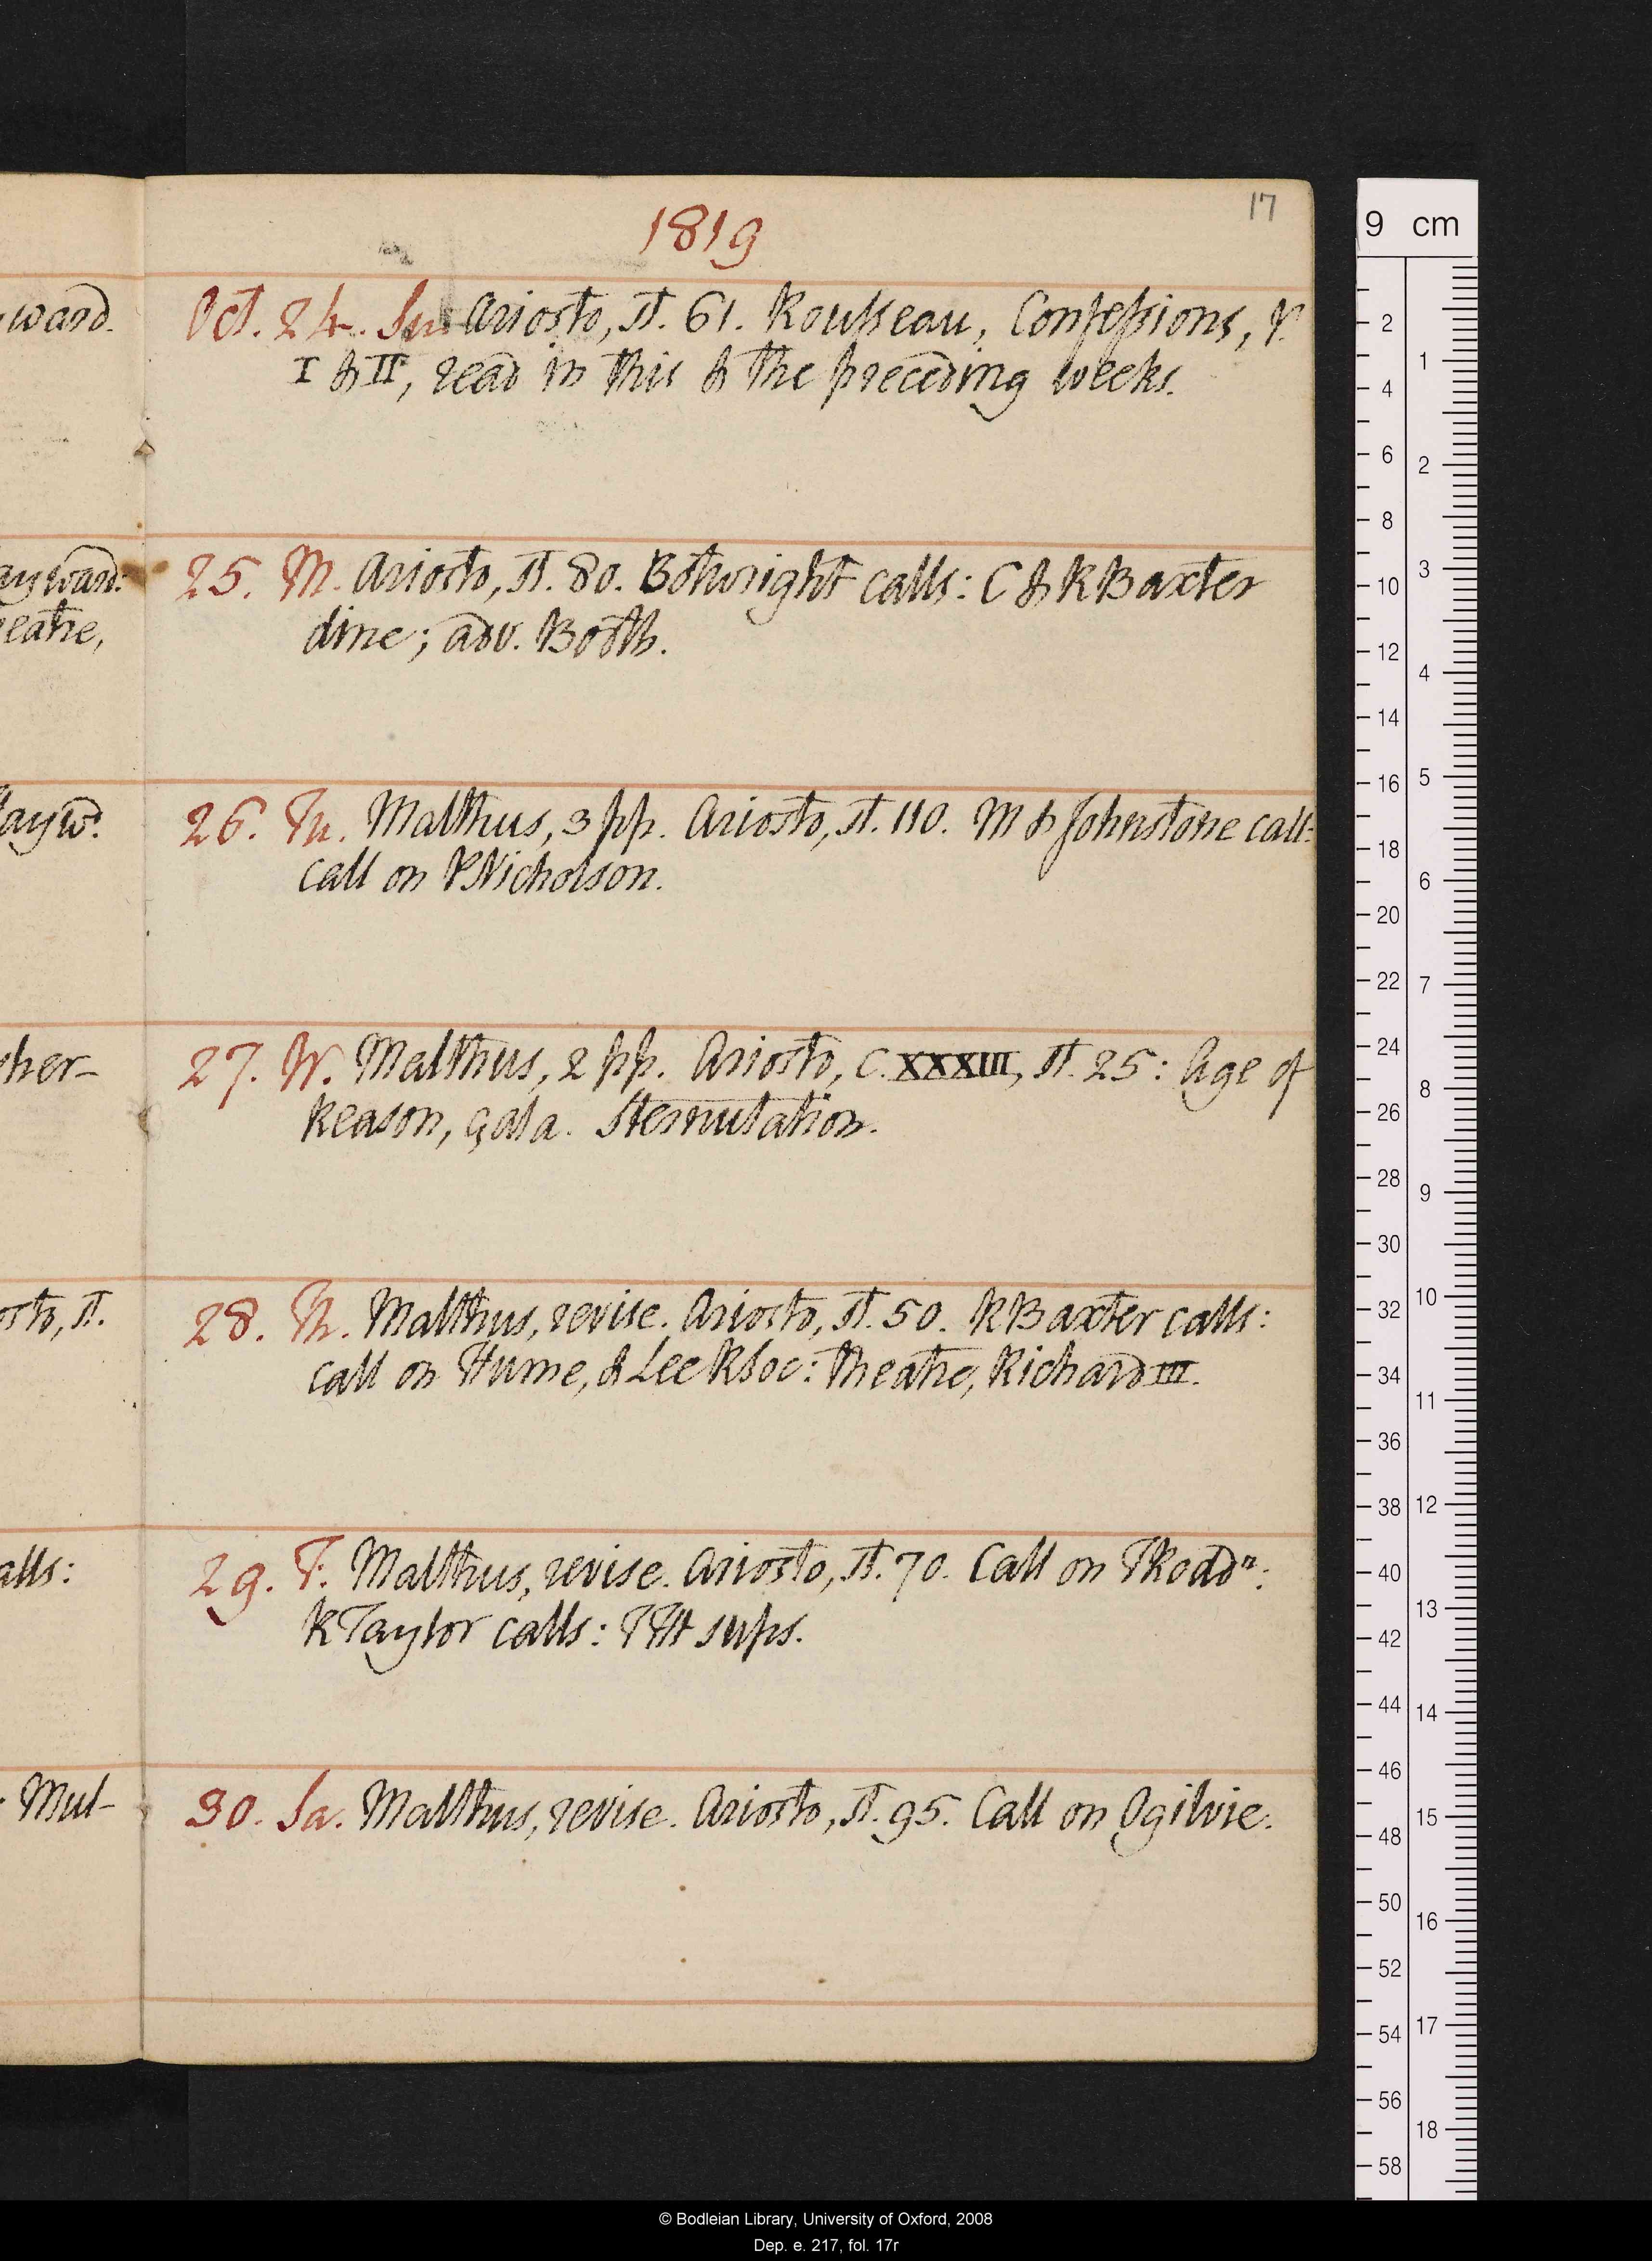 17
1819
ward.
Oct. 24. Su. Ariosto, st. 61. Rousseau, Confessions, P.
I & II, read in this & the preceding weeks.
ayward:
eatre,
25. M. Ariosto, st. 80. Botwright calls: C & R Baxter
dine; adv. Both.
ayw.
26. Tu. Malthus, 3 pp. Ariosto, st. 110. M & Johnstone call:
call on P Nicholson.
her-
27. W. Malthus, 2 pp. Ariosto, C. XXXIII, st. 25: Age of
Reason, çala. Sternutation.
osto, st.
28. Th. Malthus, revise. Ariosto, st. 50. R Baxter calls:
call on Hume, & Lee Rsoc: theatre, Richard III.
alls:
29. F. Malthus, revise. Ariosto, st. 70. Call on TRoddn:
R Taylor calls: TTH sups.
Mul-
30. Sa. Malthus, revise. Ariosto, st. 95. Call on Ogilvie.
9 cm
2 4 6 8 10 12 14 16 18 20 22 24 26 28 30 32 34 36 38 40 42 44 46 48 50 52 54 56 58
1 2 3 4 5 6 7 8 9 10 11 12 13 14 15 16 17 18
© Bodleian Library, University of Oxford, 2008
Dep. e. 217, fol. 17r